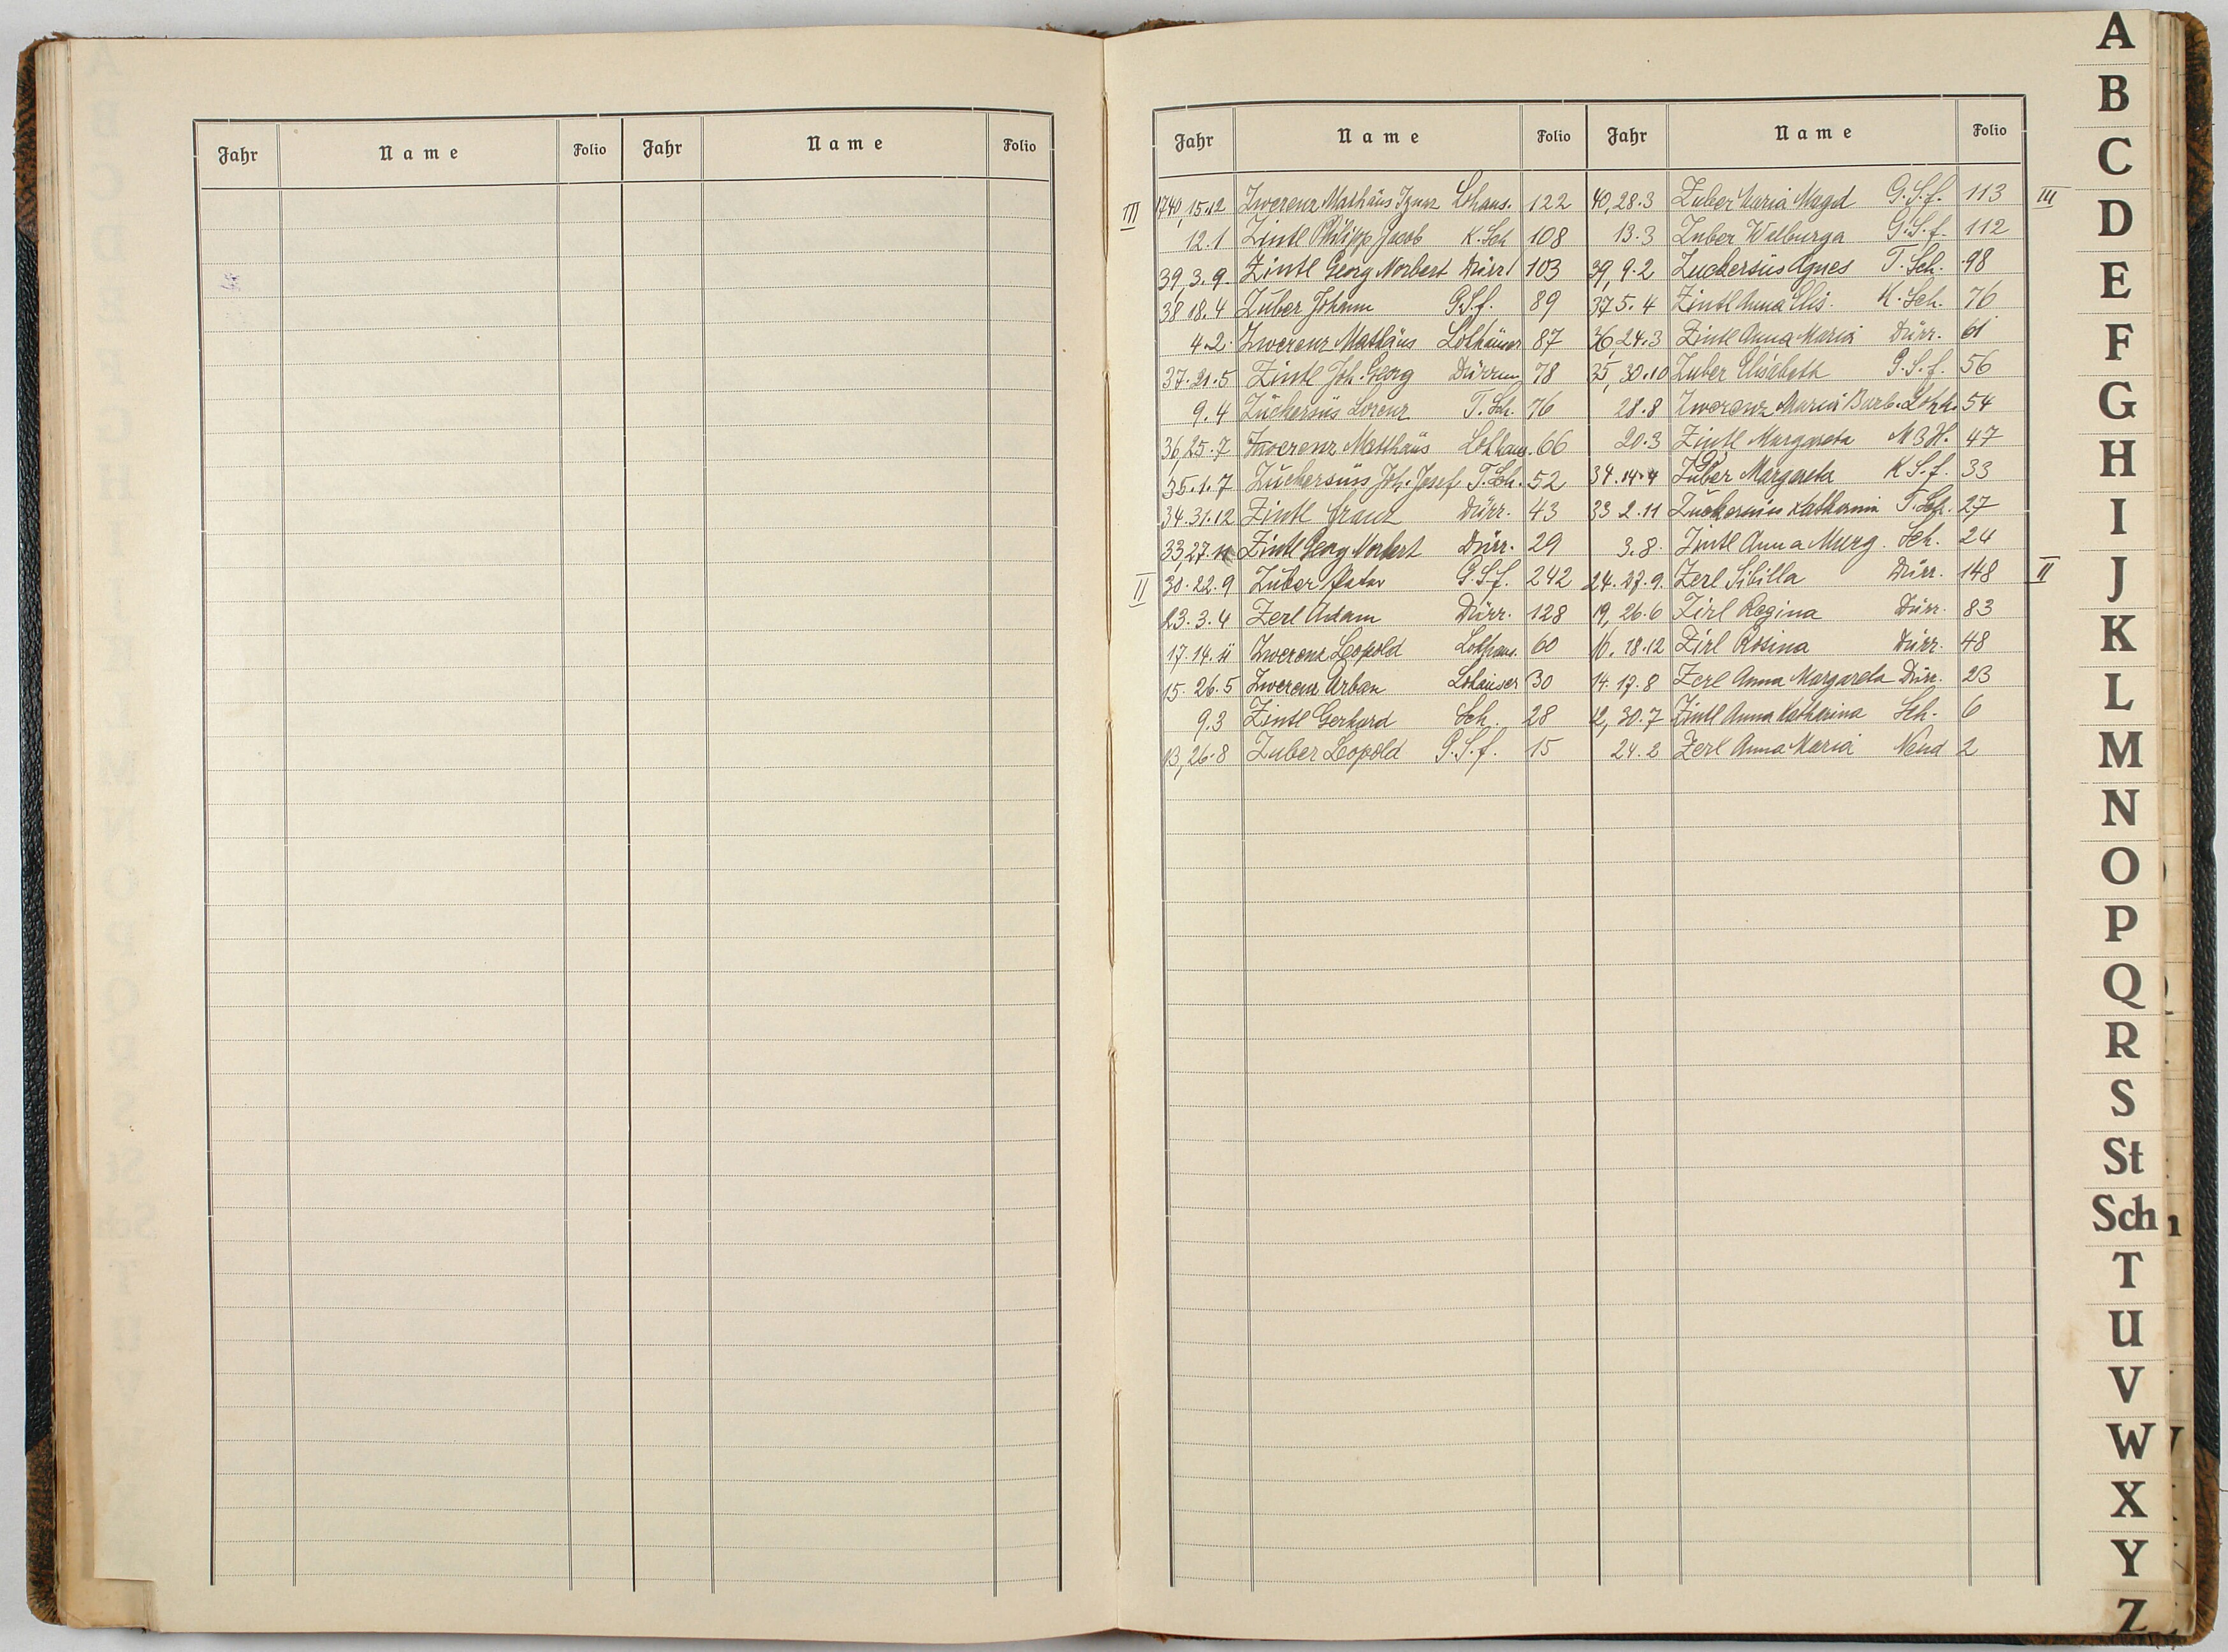 Jahr Name Folio Jahr Name Folio
Jahr Name Folio Jahr Name Folio
III 1740, 15.12 Zwerenz Mathäus Lohaus. 122
12.1 Zintl Philipp Jacob K. Sch 108
39, 3.9. Zintl Georg Norbert Dürr 103
38 18.4 Zuber Johann G.S.f. 89
4.2. Zwerenz Mathäus Lohhäuser 87
37. 21.5 Zintl Joh. Georg 78
9.4 Zuckersüs Lorenz T. Sch. 76
36, 25.7 Zwerenz Matthäus Lohhaus. 66
35. 1.7 Zuckersüss Joh. Josef T. Sch. 52
34. 31.12 Zintl Franz Dürr. 43
33, 27. Zintl Georg Norbert Dürr. 29
II 30. 22.9 Zuber Peter G.S.f. 242
23. 3.4 Zerl Adam Dürr. 128
17. 14. Zwerenz Leopold Lohhaus. 60
15. 26.5 Zwerenz Urban Lohäuser 30
9.3 Zintl Gerhard Sch. 28
13, 26.8 Zuber Leopold G.S.f. 15
40, 28.3 Zuber Maria Magd G.S.f. 113 III
13.3 Zuber Walburga G.S.f. 112
39, 9.2 Zuckersüs Agnes T. Sch. 98
37 5.4 Zintl Anna Elis. K. Sch. 76
36, 24.3 Zintl Anna Maria Dürr. 61
35, 30.10 Zuber Elisabeth G.S.f. 56
28.8 Zwerenz Maria Barb. Lohh. 54
20.3 Zintl Margareta 47
34. 14.4 Zuber Margareta K.S.f. 33
33 2.11 Zuckersüss Katharina T. Sch. 27
3.8. Zintl Anna Marg. Sch. 24
24. 27.9. Zerl Sibilla Dürr. 148 II
19, 26.6 Zirl Regina Dürr. 83
16. 18.12 Zirl Rosina Dürr. 48
14. 17.8 Zerl Anna Margareta Dürr. 23
12, 30.7 Zintl Anna Katharina Sch. 6
24.2 Zerl Anna Maria Neud 2
A
B
C
D
E
F
G
H
I
J
K
L
M
N
O
P
Q
R
S
St
Sch
T
U
V
W
X
Y
Z